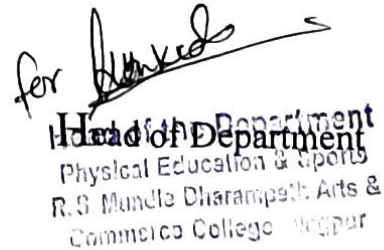 for
Head of Department
Head of the Department
Physical Education & Sports
R.S. Mundle Dharampeth Arts &
Commerce College Nagpur